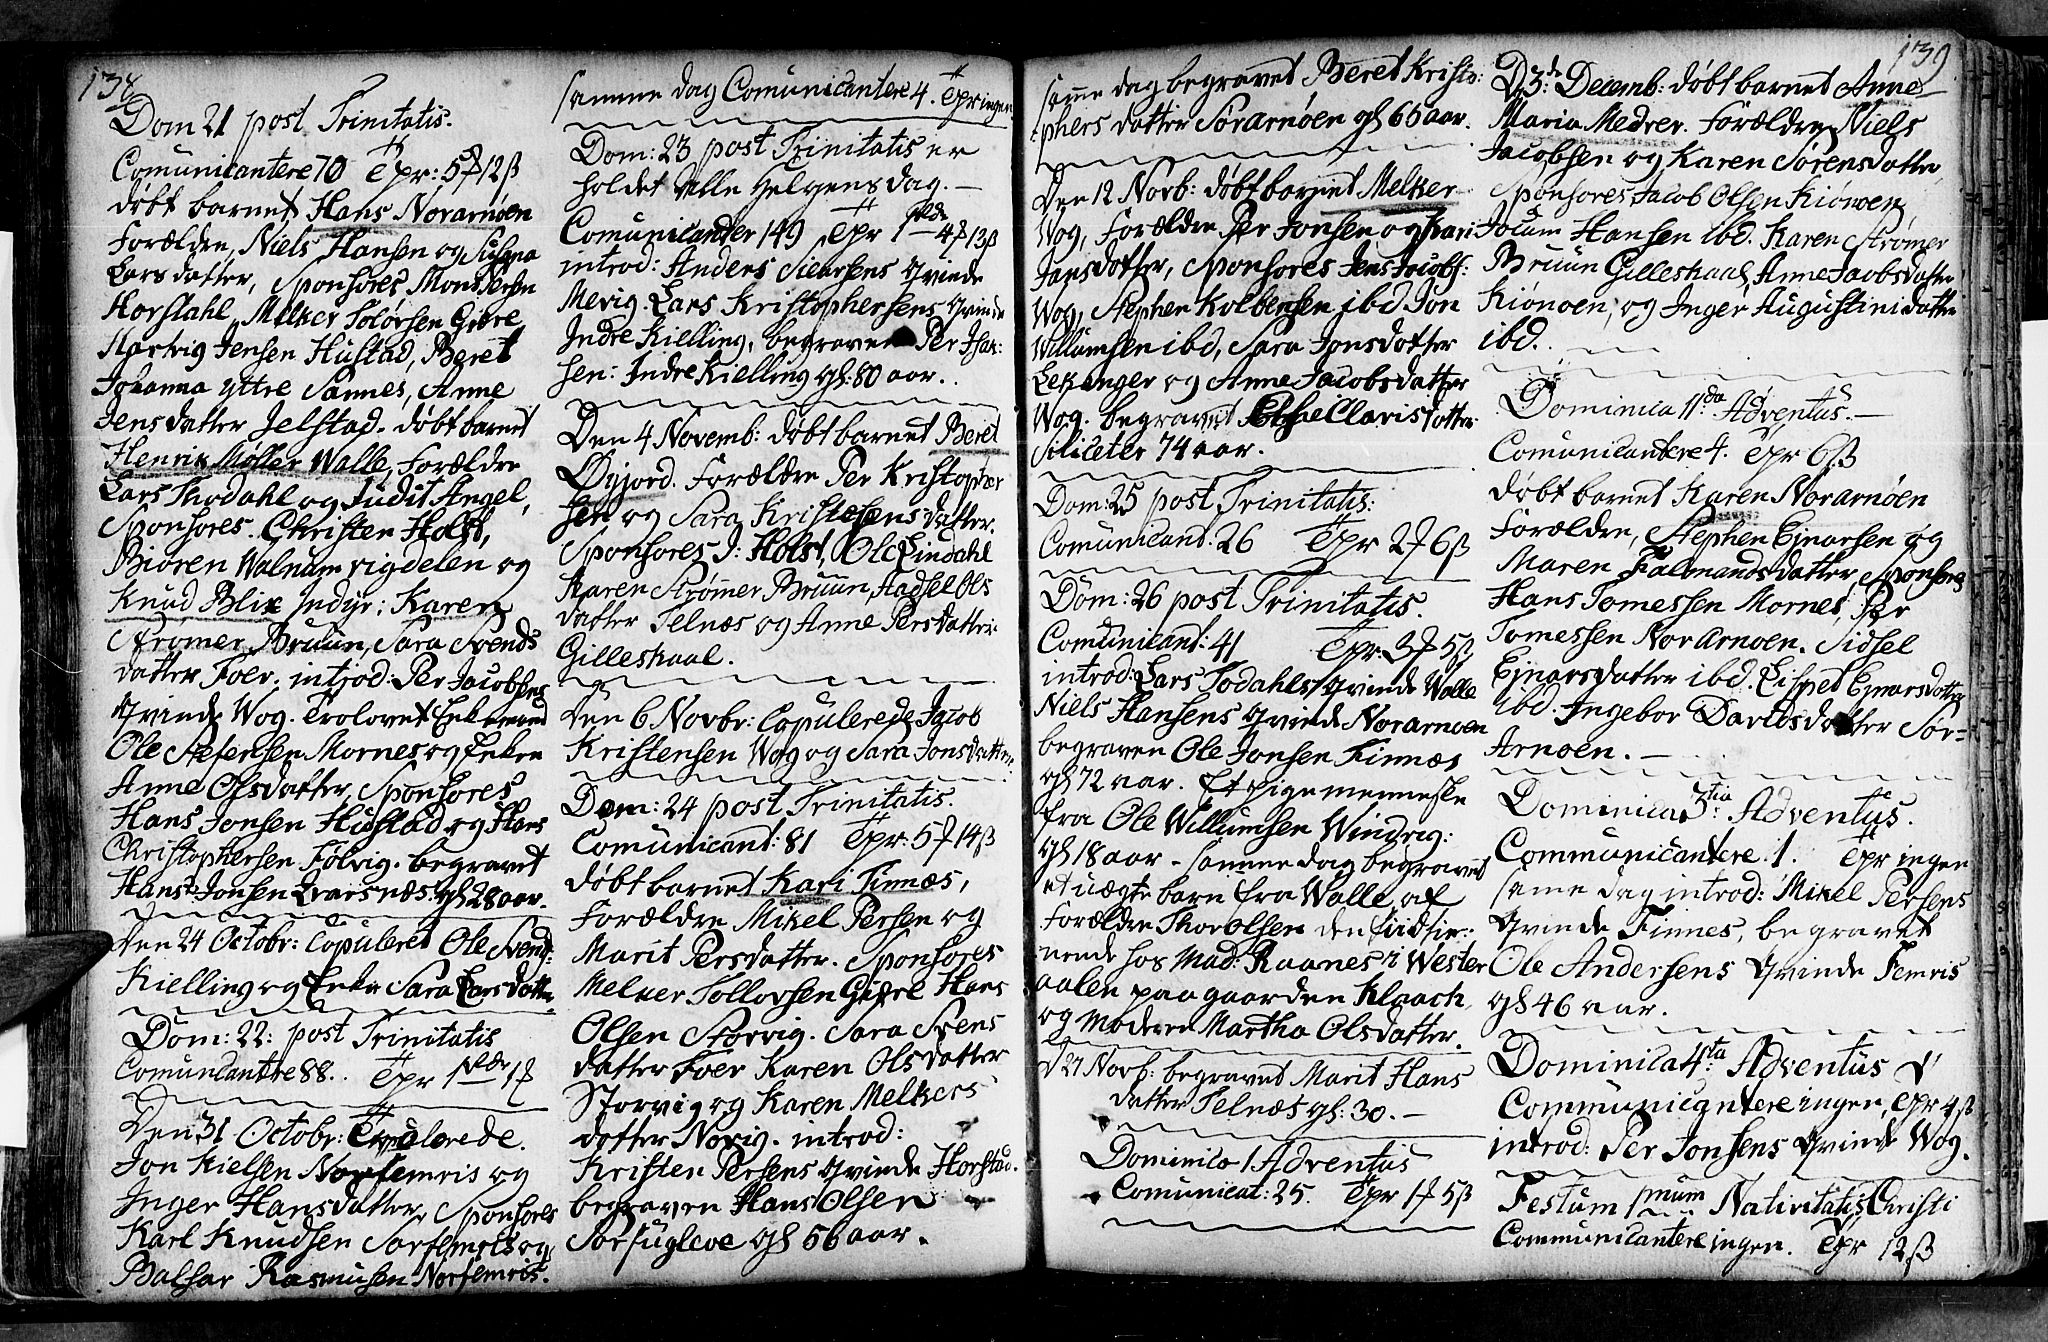 138
Dom 21 post Trinitatis.
Comunicantere 70 Tpr: 5 12ß
døbt barnet Hans Norarnøen
Forældre, Niels Hansen og Susana
Lars datter, Sponsores Mons Persen
Horstahl, Melker Gidre
Hartvig Jensen Hustad, Beret
Johanna yttre Sannes, Anne
Jens datter Jelstad. døbt barnet
Henrik Møller Walle, Forældre
Lars Thodahl og Judit Angel,
Sponsores. Christen Holst,
Biören Walnum rigdelen og
Knud Blix Indyr; Karen
Strømer Bruun, Sara Svends
datter Foer. introd: Per Jacobsens
qvinde Wog. Trolovet Enkemand
Ole Stefensen Mornes og Enken
Anne Olsdatter, Sponsores
Hans Jonsen Hustad og Hans
Christophersen Følvig. begravet
Hans Jonsen gl: 28 aar.
Den 24 Octobr: Copuleret Ole Svend:
Kielling og Enke Sara Larsdatter
Dom: 22: post Trinitatis
Comunicantere 88. Tpr 1
Den 31 Octobr:
Jon Kielsen Norfemris og
Inger Hansdatter, Sponsores
Karl Knudsen Sørfemris og
Balsar Rasmusen Norfemris.
samme dag Comunicantere 4. Tpr ingen
Dom: 23 post Trinitatis er
holdet Alle Helgens dag.
Comunicander 149 Tpr 1 4 13ß
introd: Anders Sivarsens qvinde
Mevig Lars Kristophersens qvinde
Indre Kielling, begraven Per Isak:
sen: Indre Kielling gl: 80 aar.
Den 4 Novemb: døbt barnet Beret
Øyjord. Forældre Per Kristopher
sen og Sara Kristensens datter.
Sponsores J: Holst, Ole Eindahl
Karen Strømer Bruun, Aadsel Ols
datter Telnæs og Anne Persdatter
Gilleskaal.
Den 6 Novbr: Copulerede Jacob
Kristensen Wog og Sara Jonsdatter.
Dom: 24 post Trinitatis.
Comunicant: 81 Tpr: 5 14ß
døbt barnet Kari Finnæs,
Forældre Mikel Persen og
Marit Persdatter. Sponsores
Melker Tollovsen Gidre Hans
Olsen Storvig. Sara Svens
datter Foer Karen Olsdatter
Storvig og Karen Melkers
datter Norvig. introd:
Kristen Persens qvinde Horstad.
begraven Hans Olsen
Sørfugleve gl 56 aar.
139
samme dag begravet Beret Kristo:
phers datter Sørarnøen gl 66 aar.
Den 12 Novb: døbt barnet Melker
Wog, Forældre Per Jonsen og Kari
Jansdatter, Sponsores Jens Jacobs:
Wog, Stephen Kolbensen ibd Jon
Willumsen ibd, Sara Jonsdatter
Lekanger og Anne Jacobsdatter
Wog. begravet datter
74 aar.
Dom: 25 post Trinitatis.
Comunicand. 26 Tpr 2 6ß
Dom: 26 post Trinitatis.
Comunicant: 41 Tpr: 3 5ß
introd: Lars Todahls qvinde Walle
Niels Hansens qvinde Norarnøen
begraven Ole Jonsen Finnæs
gl 72 aar. Et pigemenneske
fra Ole Willumsen Windvig:
gl 18 aar - samme dag begravet
et uægte barn fra Walle af
Forældre Thor Olsen den tid tie:
nende hos Mad: Raanes i Wester
aalen paa gaarden Klaach,
og Moderen Martha Olsdatter.
D 27 Novb: begravet Marit Hans
datter Telnæs gl: 30.
Dominica 1 Adventus
Comunicat: 25. Tpr 1 5ß
D 3: Decemb: døbt barnet Anne
Maria Medrer. Forældre Niels
Jacobsen og Karen Sørensdatter,
Sponsores Jacob Olsen Kiønøen,
Jocum Hansen ibd. Karen Strømer
Bruun Gilleskaal, Anne Jacobsdatter
Kiønøen, og Inger Augustini datter
ibd.
Dominica 11da Adventus.
Comunicantere 4. Tpr 6ß
døbt barnet Karen Norarnøen
Forældre, Stephen Ejnarsen og
Maren Falmandsdatter, Sponsores
Hans Tomessen Mornes, Per
Tomessen Norarnøen. Sidsel
Ejnarsdatter ibd. Lispet Ejnarsdatter
ibd. Ingebor Davidsdatter Sør-
Arnøen.
Dominica 3tia: Adventus.
Communicantere. 1. Tpr ingen
same dag introd: Mikel Persens
qvinde Finnes, begravet
Ole Andersens qvinde Femris
gl 46 aar.
Dominica 4ta: Adventus
Communicantere ingen, Tpr 4ß
introd: Per Jonsens qvinde Wog.
Festum 1mum Nativitatis Christi
Communicantere ingen. Tpr 12ß